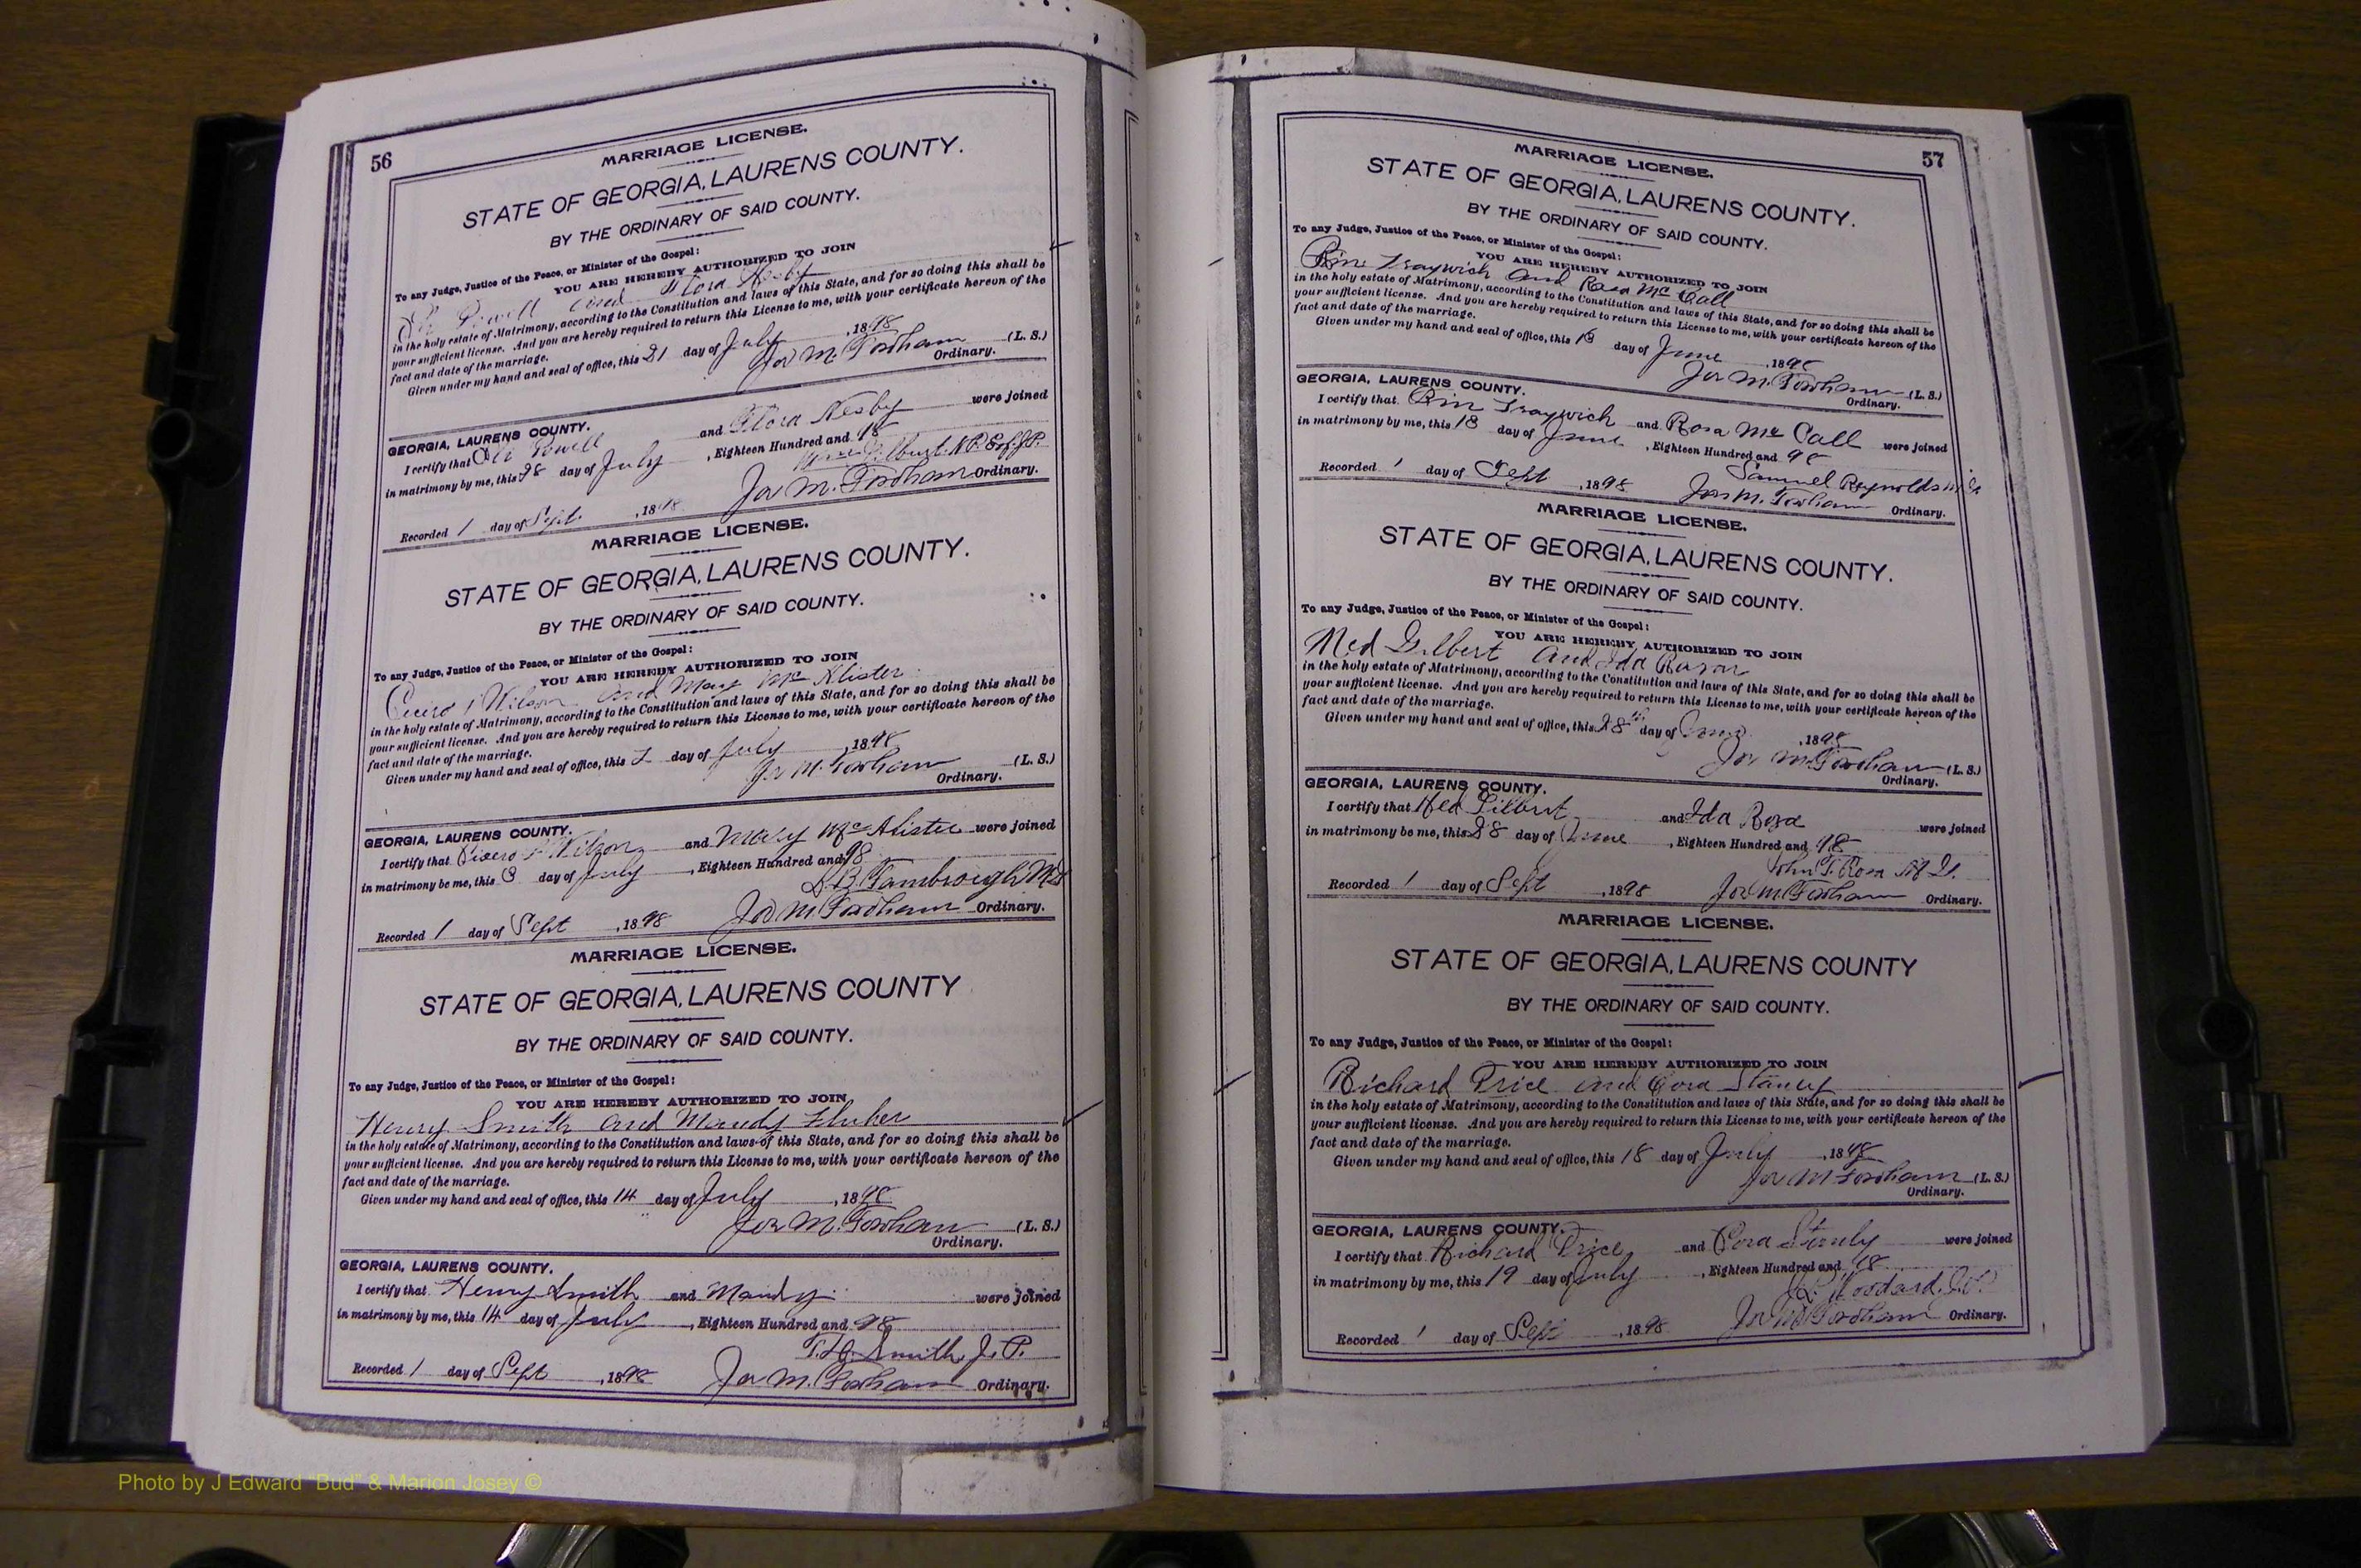 56
MARRIAGE LICENSE.
STATE OF GEORGIA, LAURENS COUNTY.
BY THE ORDINARY OF SAID COUNTY.
To any Judge, Justice of the Peace, or Minister of the Gospel:
YOU ARE HEREBY AUTHORIZED TO JOIN
Powell and Flora Nesby
in the holy estate of Matrimony, according to the Constitution and laws of this State, and for so doing this shall be
your sufficient license. And you are hereby required to return this License to me, with your certificate hereon of the
fact and date of the marriage.
Given under my hand and seal of office, this 21 day of July, 1898
Jos M. Fordham (L. S.)
Ordinary.
GEORGIA, LAURENS COUNTY.
I certify that Powell and Flora Nesby were joined
in matrimony by me, this 28 day of July, Eighteen Hundred and 98
Recorded 1 day of Sept., 1898 Jos M. Fordham Ordinary.
MARRIAGE LICENSE.
STATE OF GEORGIA, LAURENS COUNTY.
BY THE ORDINARY OF SAID COUNTY.
To any Judge, Justice of the Peace, or Minister of the Gospel:
YOU ARE HEREBY AUTHORIZED TO JOIN
Cicero Wilson and Mary McAlister
in the holy estate of Matrimony, according to the Constitution and laws of this State, and for so doing this shall be
your sufficient license. And you are hereby required to return this License to me, with your certificate hereon of the
fact and date of the marriage.
Given under my hand and seal of office, this 2 day of July, 1898
Jos M. Fordham (L. S.)
Ordinary.
GEORGIA, LAURENS COUNTY.
I certify that Cicero Wilson and Mary McAlister were joined
in matrimony be me, this 3 day of July, Eighteen Hundred and 98
Recorded 1 day of Sept, 1898 Jos M. Fordham Ordinary.
MARRIAGE LICENSE.
STATE OF GEORGIA, LAURENS COUNTY
BY THE ORDINARY OF SAID COUNTY.
To any Judge, Justice of the Peace, or Minister of the Gospel:
YOU ARE HEREBY AUTHORIZED TO JOIN
Henry Smith and Mandy
in the holy estate of Matrimony, according to the Constitution and laws of this State, and for so doing this shall be
your sufficient license. And you are hereby required to return this License to me, with your certificate hereon of the
fact and date of the marriage.
Given under my hand and seal of office, this 14 day of July, 1898
Jos M. Fordham (L. S.)
Ordinary.
GEORGIA, LAURENS COUNTY.
I certify that Henry Smith and Mandy were joined
in matrimony by me, this 14 day of July, Eighteen Hundred and 98
Smith, J. P.
Recorded 1 day of Sept, 1898 Jos M. Fordham Ordinary.
57
MARRIAGE LICENSE.
STATE OF GEORGIA, LAURENS COUNTY.
BY THE ORDINARY OF SAID COUNTY.
To any Judge, Justice of the Peace, or Minister of the Gospel:
YOU ARE HEREBY AUTHORIZED TO JOIN
Traywich and Rosa McCall
in the holy estate of Matrimony, according to the Constitution and laws of this State, and for so doing this shall be
your sufficient license. And you are hereby required to return this License to me, with your certificate hereon of the
fact and date of the marriage.
Given under my hand and seal of office, this day of June, 1898
Jos M. Fordham (L. S.)
Ordinary.
GEORGIA, LAURENS COUNTY.
I certify that Traywich and Rosa McCall were joined
in matrimony by me, this 18 day of June, Eighteen Hundred and 98
Samuel Reynolds
Recorded 1 day of Sept, 1898 Jos M. Fordham Ordinary.
MARRIAGE LICENSE.
STATE OF GEORGIA, LAURENS COUNTY.
BY THE ORDINARY OF SAID COUNTY.
To any Judge, Justice of the Peace, or Minister of the Gospel:
YOU ARE HEREBY AUTHORIZED TO JOIN
Ned Gilbert and Ida
in the holy estate of Matrimony, according to the Constitution and laws of this State, and for so doing this shall be
your sufficient license. And you are hereby required to return this License to me, with your certificate hereon of the
fact and date of the marriage.
Given under my hand and seal of office, this 28th day of June, 1898
Jos M. Fordham (L. S.)
Ordinary.
GEORGIA, LAURENS COUNTY.
I certify that Ned Gilbert and Ida were joined
in matrimony be me, this 28 day of June, Eighteen Hundred and 98
John T.
Recorded 1 day of Sept, 1898 Jos M. Fordham Ordinary.
MARRIAGE LICENSE.
STATE OF GEORGIA, LAURENS COUNTY
BY THE ORDINARY OF SAID COUNTY.
To any Judge, Justice of the Peace, or Minister of the Gospel:
YOU ARE HEREBY AUTHORIZED TO JOIN
Richard Price and Cora Stanly
in the holy estate of Matrimony, according to the Constitution and laws of this State, and for so doing this shall be
your sufficient license. And you are hereby required to return this License to me, with your certificate hereon of the
fact and date of the marriage.
Given under my hand and seal of office, this 18 day of July, 1898
Jos M Fordham (L. S.)
Ordinary.
GEORGIA, LAURENS COUNTY.
I certify that Richard Price and Cora Stanly were joined
in matrimony by me, this 19 day of July, Eighteen Hundred and 98
Woodard, J.P.
Recorded 1 day of Sept, 1898 Jos M Fordham Ordinary.
Photo by J Edward "Bud" & Marion Josey ©